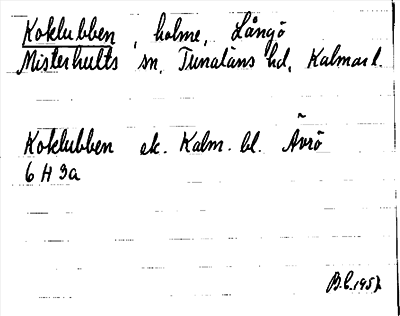 Koklubben, holme, Långö
Misterhults sn, Tunaläns hd, Kalmar l.
Koklubben ek. Kalm. bl. Ävrö
6 H 3a
B.C. 1957